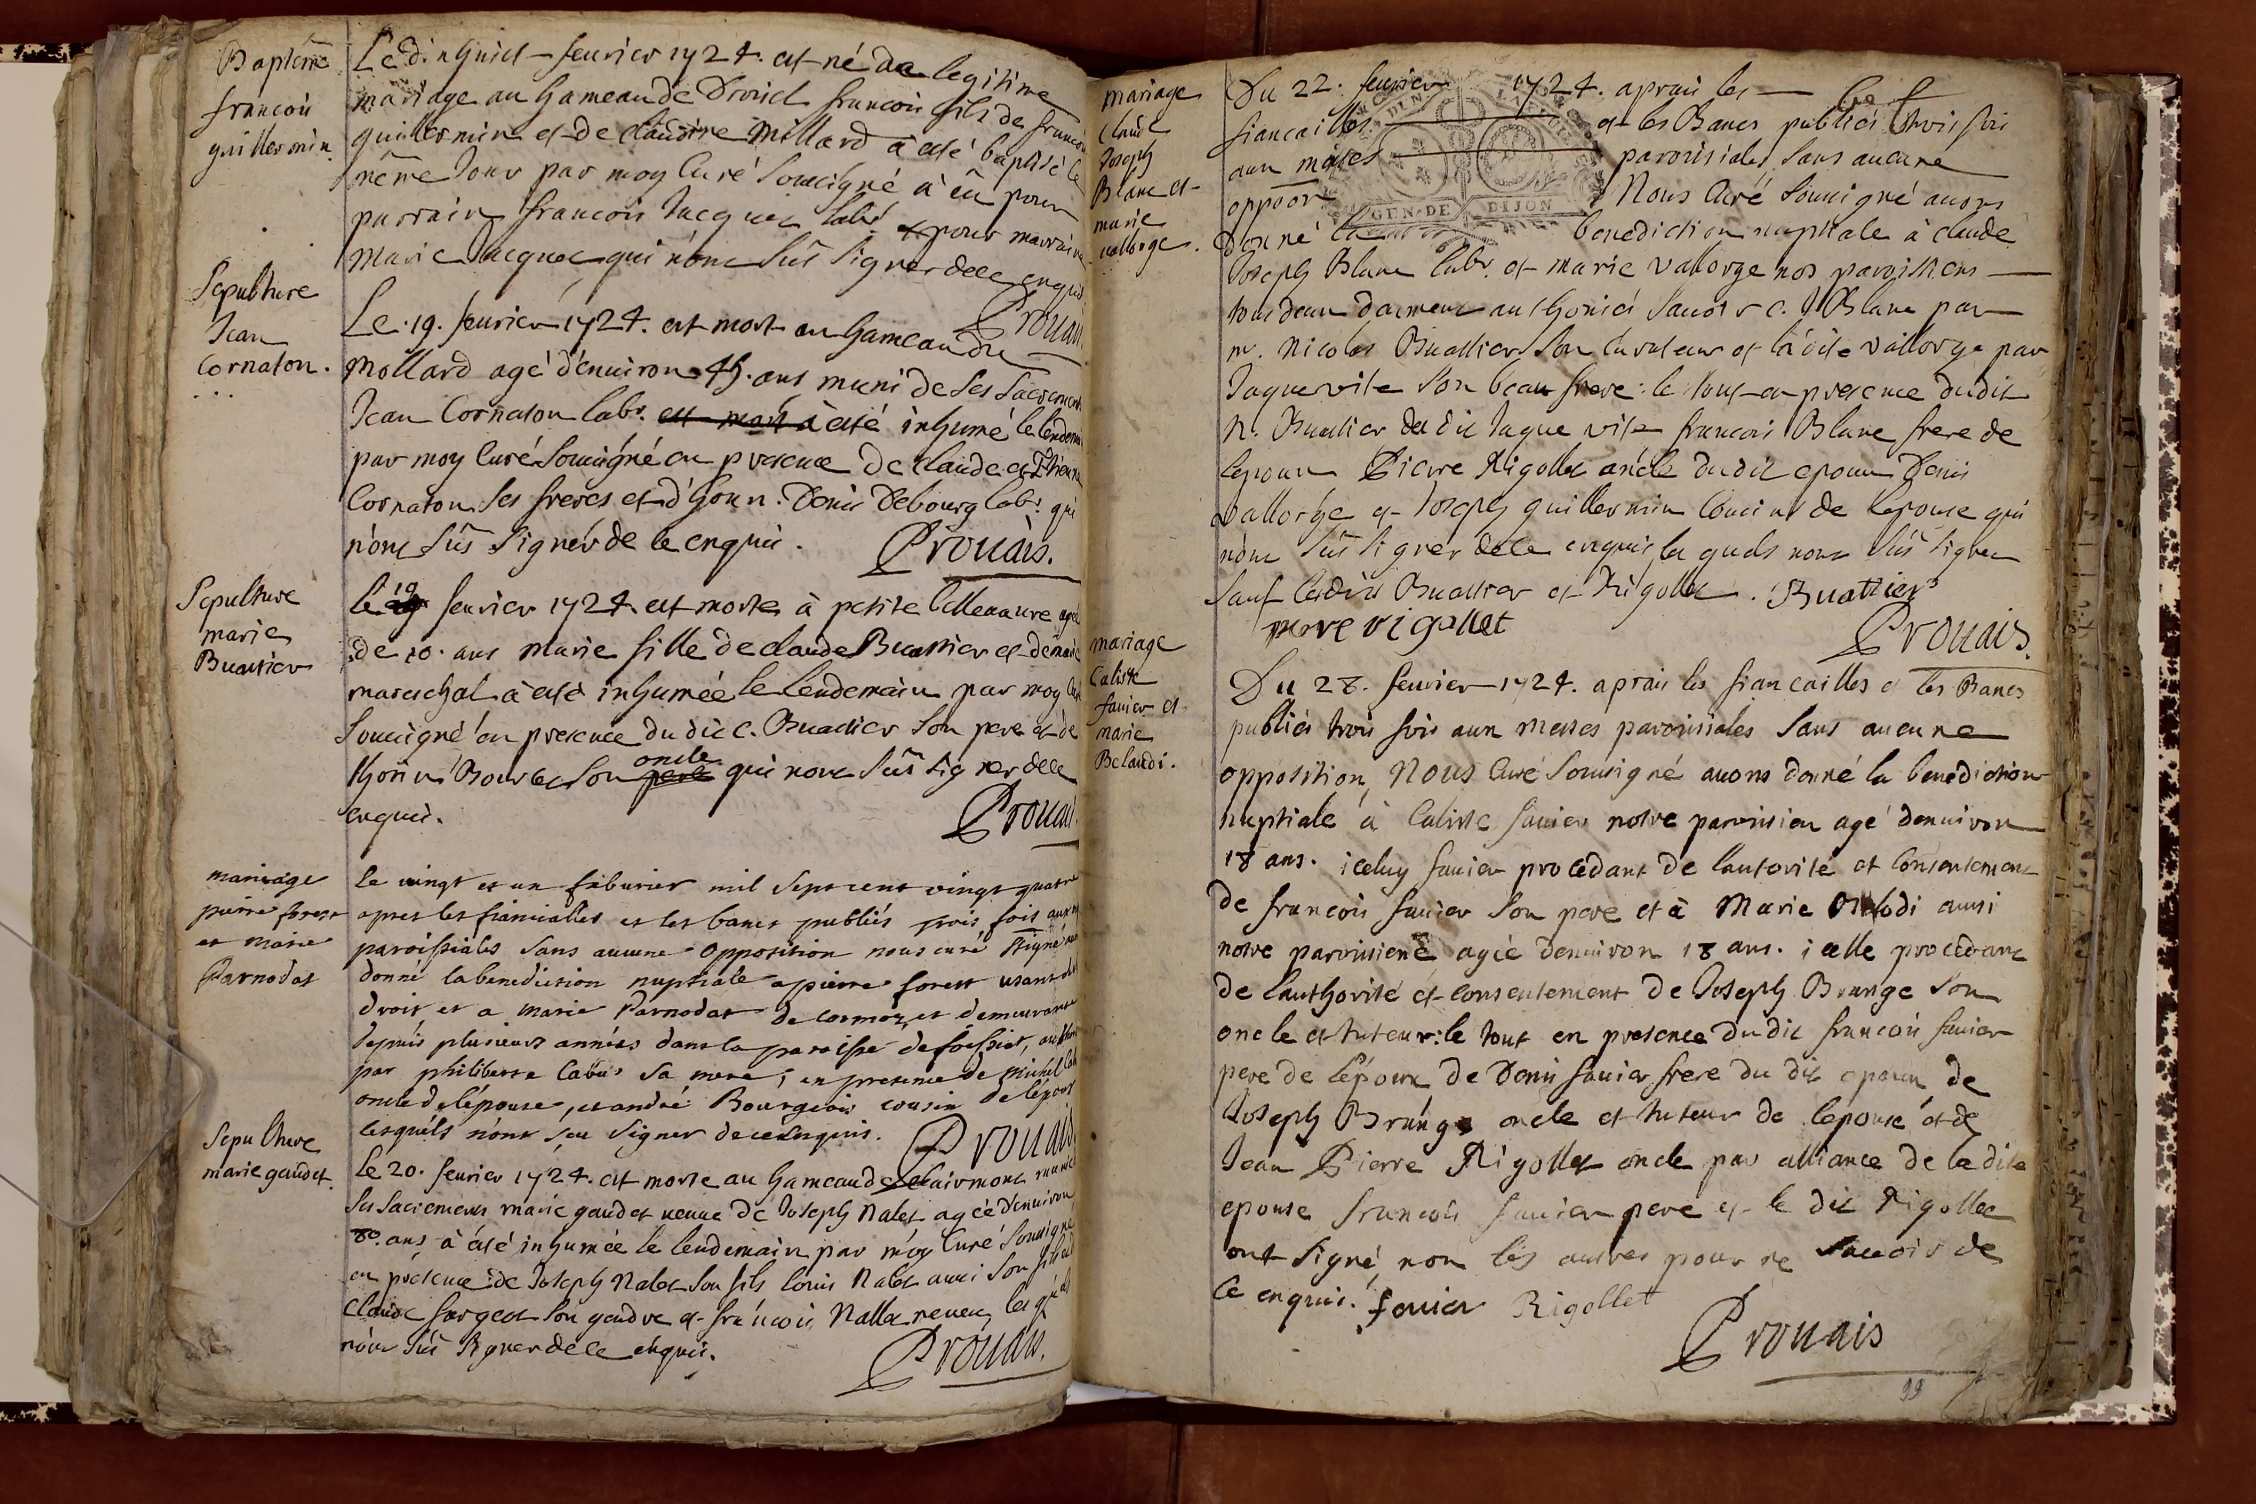 Baptême
francois
guillermin.
Le dixhuict feurier 1724. est né de legitime
mariage au hameau de francois fils de francois
guillermin et de claudine Millard à esté baptisé le
même Jour par moy Curé Soussigné à eû pour
parrain francois Jacquet labr. et pour marraine
Marie Jacquet qui nont Sûs Signer de ce enquis
Prouais.
Sepulture
Jean
Cornaton.
Le 19. feurier 1724. est mort au hameau du
Mollard agé d'enuiron 45. ans muni de Ses Sacremens
Jean Cornaton labr. est mort à esté inhumé le lendemain
par moy Curé Soussigné en presence de claude et
Cornaton Ses freres et d'hon. Denis Debourg labr. qui
n'ont Sûs Signér de ce enquis.
Prouais.
Sepulture
marie
Buattier
le 19 feurier 1724. est morte à petite agée
de 10. ans Marie fille de claude Buattier et de marie
mareschal à esté inhumée le lendemain par moy Curé
Soussigné en presence du dit c. Buattier Son pere et de
Son oncle qui nont Sûs Signer de ce
enquis.
Prouais
mariage
pierre forest
et marie
Parnodat
le vingt et un feburier mil Sept cent vingt quatre
apres les fiancialles et les bancs publiés trois fois aux
paroissiales Sans aucune opposition nous curé
donné la benediction nuptiale a pierre forest usant de
droit et a marie Parnodat de cormoz, et demeurante
depuis plusieurs années dans la paroisse de foissiat,
par philiberte Sa mere; en presence de Michel
oncle de lépouse, et andré Bourgeois cousin de lépoux
lesquéls n'ont Sçu Signer de ce Enquis.
Prouais
Sepulture
marie gaudet.
Le 20. feurier 1724. est morte au hameau de clairmont munie
Ses Sacremens marie gaudet veuue de Joseph Nalet agée d'enuiron
80. ans à esté inhumée le lendemain par moy Curé Soussigné
en presence de Joseph Nalet Son fils louis Nalet aussi Son fils
Claude Sargeot Son gendre et francois Nallet neueu, les quels
n'ont Sûs Signer de ce enquis.
Prouais.
mariage
Claude
Joseph
Blanc et
marie
vallorge.
Du 22. feurier 1724. aprais les
fiancailles et les Bancs publiés trois fois
aux messes paroissiales, Sans aucune
opposon Nous Curé Soussigné auons
GEN. DE DIJON
donné la benediction nuptiale à claude
Joseph Blanc labr. et marie vallorge nos paroissiens
tous deux duement authorisés Sauoir c. J Blanc par
m. Nicolas Buattier Son Curateur et la dite vallorge par
Jaque vite Son beau frere: le tout en presence dudit
N. Buattier du dit Jaque vite francois Blanc frere de
lepoux Pierre Rigollet oncle du dit epoux Denis
vallorge et Joseph guillermin Cousins de lepouse qui
n'ont Sûs Signér de ce enquis les quels nont Sûs Signer
Sauf lesdits Buattier et Rigollet. Buattier
pierre rigollet
Prouais.
mariage
Caliste
fauier et
marie
Belaudi.
Du 28. feurier 1724. aprais les fiancailles et les Bancs
publiés trois fois aux messes paroissiales Sans aucune
opposition, Nous Curé Soussigné auons donné la benediction
nuptiale à Caliste fauier notre paroissien agé denuiron
18 ans. iceluy fauier procedant de lautorité et Consentement
de francois fauier Son pere et à Marie aussi
notre paroissiene agée denuiron 18 ans. icelle procedant
de lauthorité et Consentement de Joseph Brunge Son
oncle et tuteur: le tout en presence du dit francois fauier
pere de lépoux de Denis fauier frere du dit epoux de
Joseph Brunge oncle et tuteur de lépouse et de
Jean Pierre Rigollet oncle par alliance de la dite
epouse francois fauier pere et le dit Rigollet
ont Signé, non les autres pour ne Sauoir de
Ce enquis. fauier Rigollet
Prouais
99